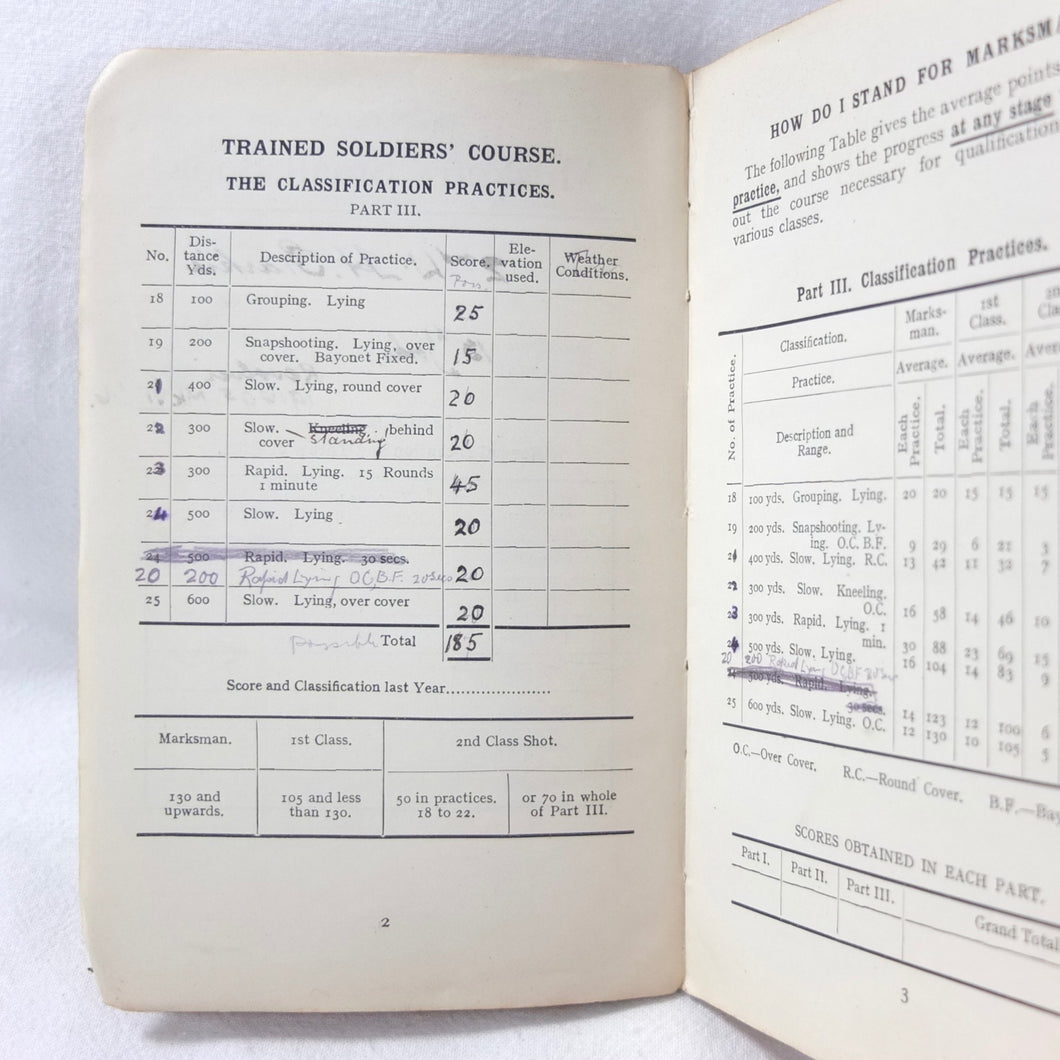 TRAINED SOLDIERS' COURSE.
THE CLASSIFICATION PRACTICES.
PART III.
No. Dis-tance Yds. Description of Practice. Score. Ele-vation used. Weather Conditions.
Poss.
18 100 Grouping. Lying 25
19 200 Snapshooting. Lying, over
cover. Bayonet Fixed. 15
21 400 Slow. Lying, round cover 20
22 300 Slow. Kneeling, behind
cover standing 20
23 300 Rapid. Lying. 15 Rounds
1 minute 45
24 500 Slow. Lying 20
24 500 Rapid. Lying. 30 secs.
20 200 Rapid Lying O.C,B.F. 20Secs 20
25 600 Slow. Lying, over cover 20
possible Total 185
Score and Classification last Year......................
Marksman. 1st Class. 2nd Class Shot.
130 and upwards. 105 and less than 130. 50 in practices. 18 to 22. or 70 in whole of Part III.
2
HOW DO I STAND FOR MARKSMA
The following Table gives the average points
practice, and shows the progress at any stage
out the course necessary for qualification
various classes.
Part III. Classification Practices.
No. of Practice. Classification. Marks-man. 1st Class. 2n Cla
Practice. Average. Average. Aver
Description and Range. Each Practice. Total. Each Practice. Total. Each Practice.
18 100 yds. Grouping. Lying. 20 20 15 15 15
19 200 yds. Snapshooting. Ly-
ing. O.C. B.F. 9 29 6 21 3
21 400 yds. Slow. Lying. R.C. 13 42 11 32 7
22 300 yds. Slow. Kneeling.
O.C. 16 58 14 46 10
23 300 yds. Rapid. Lying. 1
min. 30 88 23 69 15
24 500 yds. Slow. Lying. 16 104 14 83 9
20 200 Rapid Lying O.C.B.F. 20 Sec
24 500 yds. Rapid. Lying.
30 secs. 14 123 12 100 6
25 600 yds. Slow. Lying. O.C. 12 130 10 105 5
O.C.—Over Cover. R.C.—Round Cover. B.F.—Bay
SCORES OBTAINED IN EACH PART.
Part I. Part II. Part III. Grand Total
3